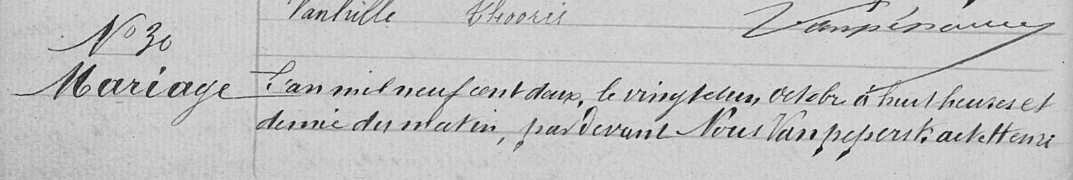 Vanhille Thooris
N° 30
Mariage
L'an mil neuf cent deux, le vingt et un octobre à huit heures et
demie du matin, par devant Nous Vanpeperstraete Henri